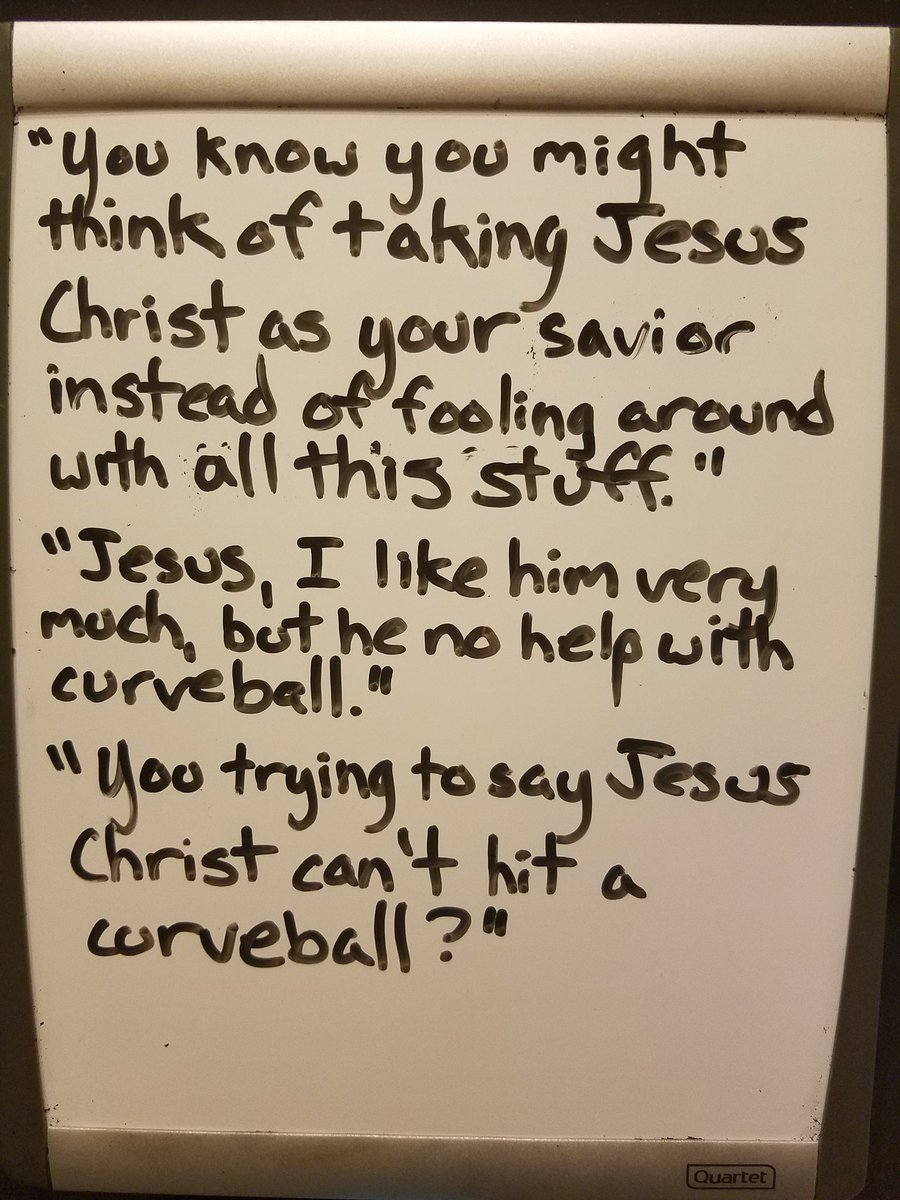 "You know you might
think of taking Jesus
Christ as your savior
instead of fooling around
with all this stuff."
"Jesus, I like him very
much, but he no help with
curveball."
"You trying to say Jesus
Christ can't hit a
curveball?"
Quartet